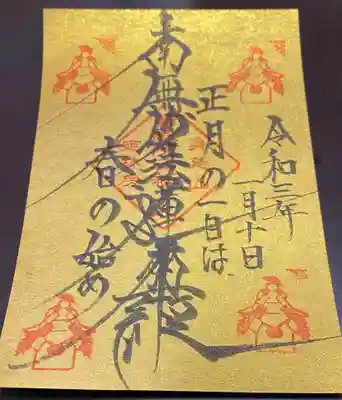 令和三年
一月十日
正月の一日は
南無妙法蓮華経
春の始め